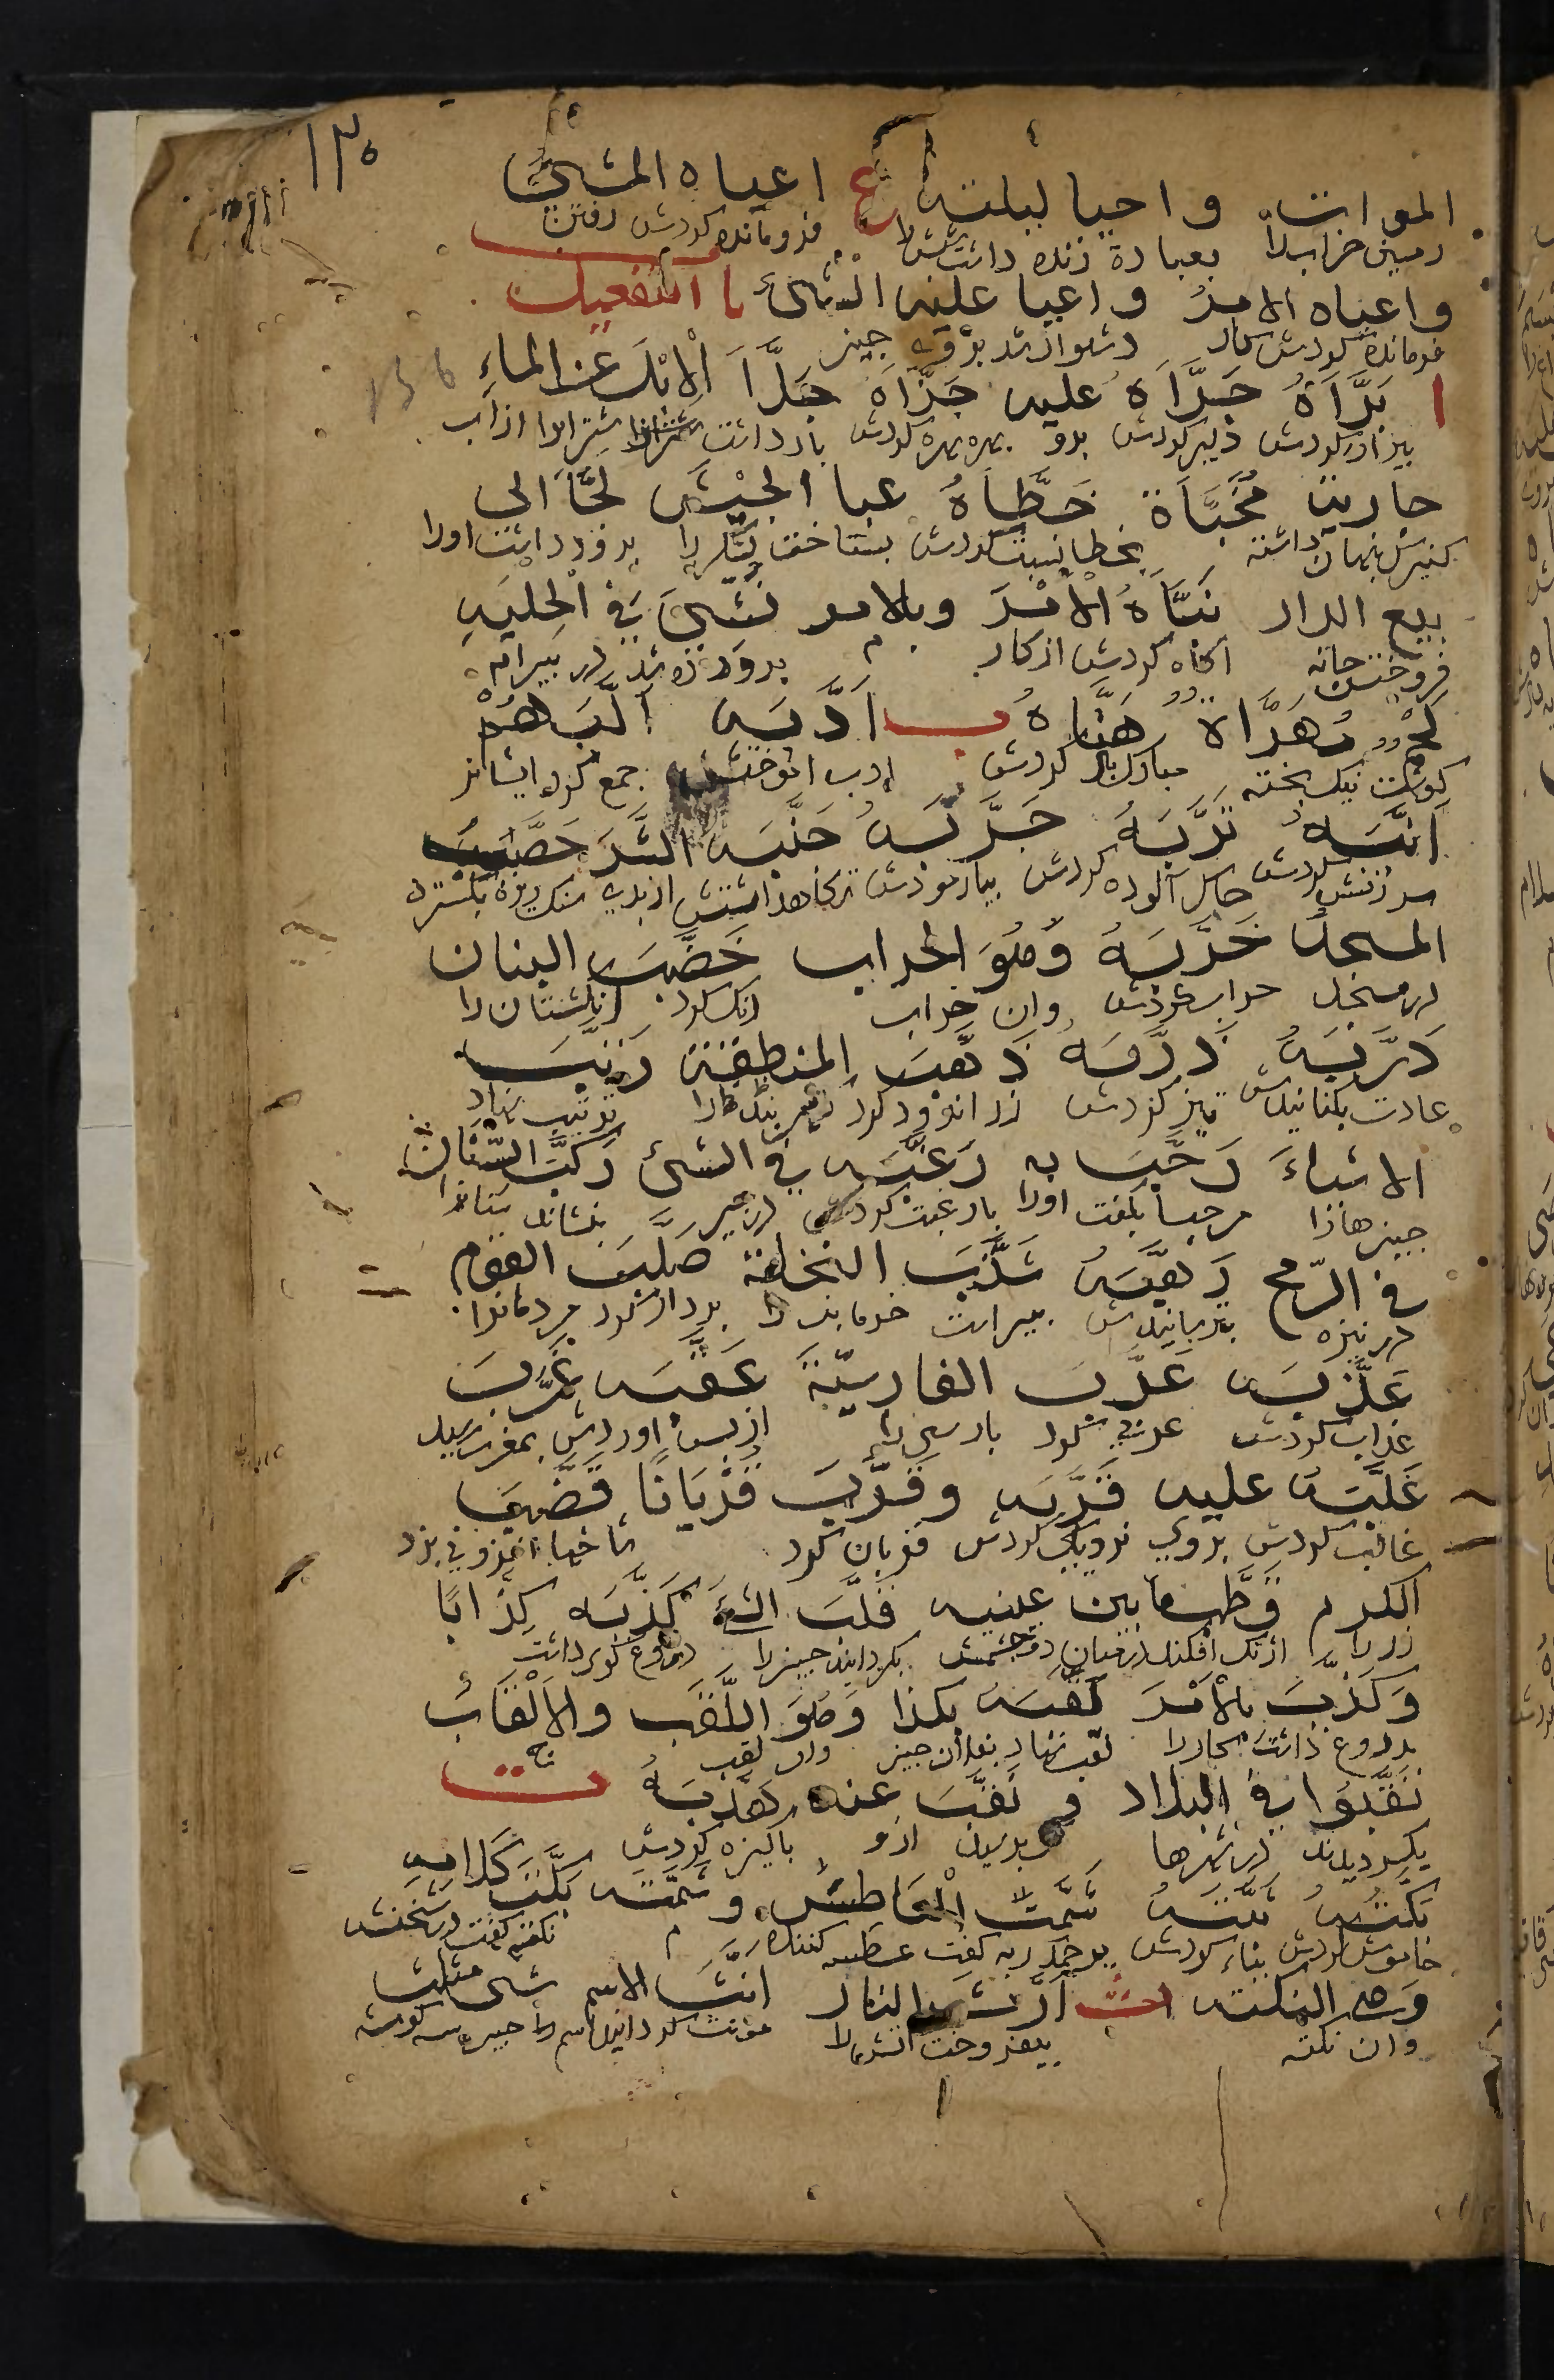 ١٣٥
الموات واحيا ليلته ع اعياه المشي
زمين خراب را بعبادة زنده داشت شبش را فرومانده كردش رفتن
واعياه الامر واعيا عليه الشئ باب التفعيل
فرومانده كردش كار دشوار شد برو چيز
ا برّأه جرّأه عليه جزّأه حلّأ الابل عن الماء
بيزار كردش دلير كردش برو بهره بهره كردش بازداشت شترانرا از آب
جارية مخبّأة خطّأه عبّا الجيش لجّأ الى
كنيزك پنهان داشته بخطا نسبت كردش بساخت لشكر را بر فروداشت اورا
بيع الدار نبّأه الامر وبالامر نشئ في الحلية
فروختن خانه آگاه كردش از كار م پرورده شد در پيرايه
لحم مهرّأة هنّأه ب ادّبه الّبهم
گوشت نيك پخته مبارك باد كردش ادب آموختش جمع كرد ايشانرا
انّبه ترّبه جرّبه جنّبه الشر حصّب
سرزنش كردش خاك آلوده كردش بيازمودش نگاه داشتش از بدى سنگ ريزه بگسترد
المسجد خرّبه وهو الخراب خضّب البنان
در مسجد خراب كردش وآن خراب رنگ كرد انگشتان را
درّبه ذرّبه ذهّب المنطقة رتّب
عادت بكنانيدش تيز كردش زر اندود كرد كمربند را ترتيب نهاد
الاشياء رحّب به رغّبه في الشئ ركّب السنان
چيزها را مرحبا بگفت اورا با رغبت كردش در چيز بنشاند سنانرا
في الرّمح رهّبه شذّب النخلة صلّب القوم
در نيزه بترسانيدش بپيراست خرما بن را بر دار كرد مردمانرا
عذّبه عرّب الفارسيّة عقّبه غرّب
عذاب كردش عربي كرد پارسى را از پس او در آمدش بمغرب رسيد
غلّبه عليه قرّبه وقرّب قربانا قضّب
غالب كردش بروى نزديك كردش قربان كرد شاخها افزونى بزد
الكرم قطّب ما بين عينيه قلّب الشئ كذّبه كذّابا
رز را اژنگ افكند در ميان دو چشمش بگردانيد چيز را دروغ گوى داشت
وكذّب بالامر لقّبه بكذا وهو اللّقب والالقاب
بدروغ داشت كار را لقب نهاد بفلان چيز وآن لقب ج
نقّبوا في البلاد ونقّب عنه هذّبه ت
بگرديدند در شهرها پرسيد ازو پاكيزه كردش
بكّته بيّته شمّت العاطس وسمّته نكّت كلامه
خاموش كردش بناء كردش يرحمك ربه گفت عطسه كننده را م نكته گفت در سخنش
وهي النكتة ث ارّث النار انّث الاسم شئ مثلّث
وآن نكته بيفروخت آتش را مؤنث گردانيد اسم را چيز سه گوشه